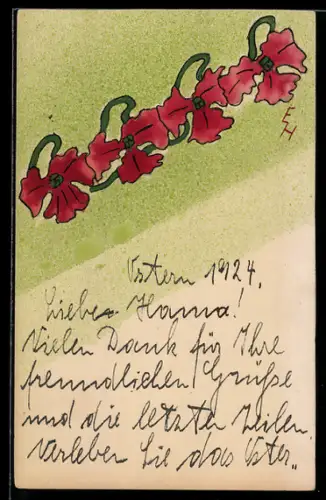 EH
Ostern 1924.
Liebe Hanna!
Vielen Dank für Ihre
freundlichen Grüße
und die letzten Zeilen.
Verleben Sie das Oster„